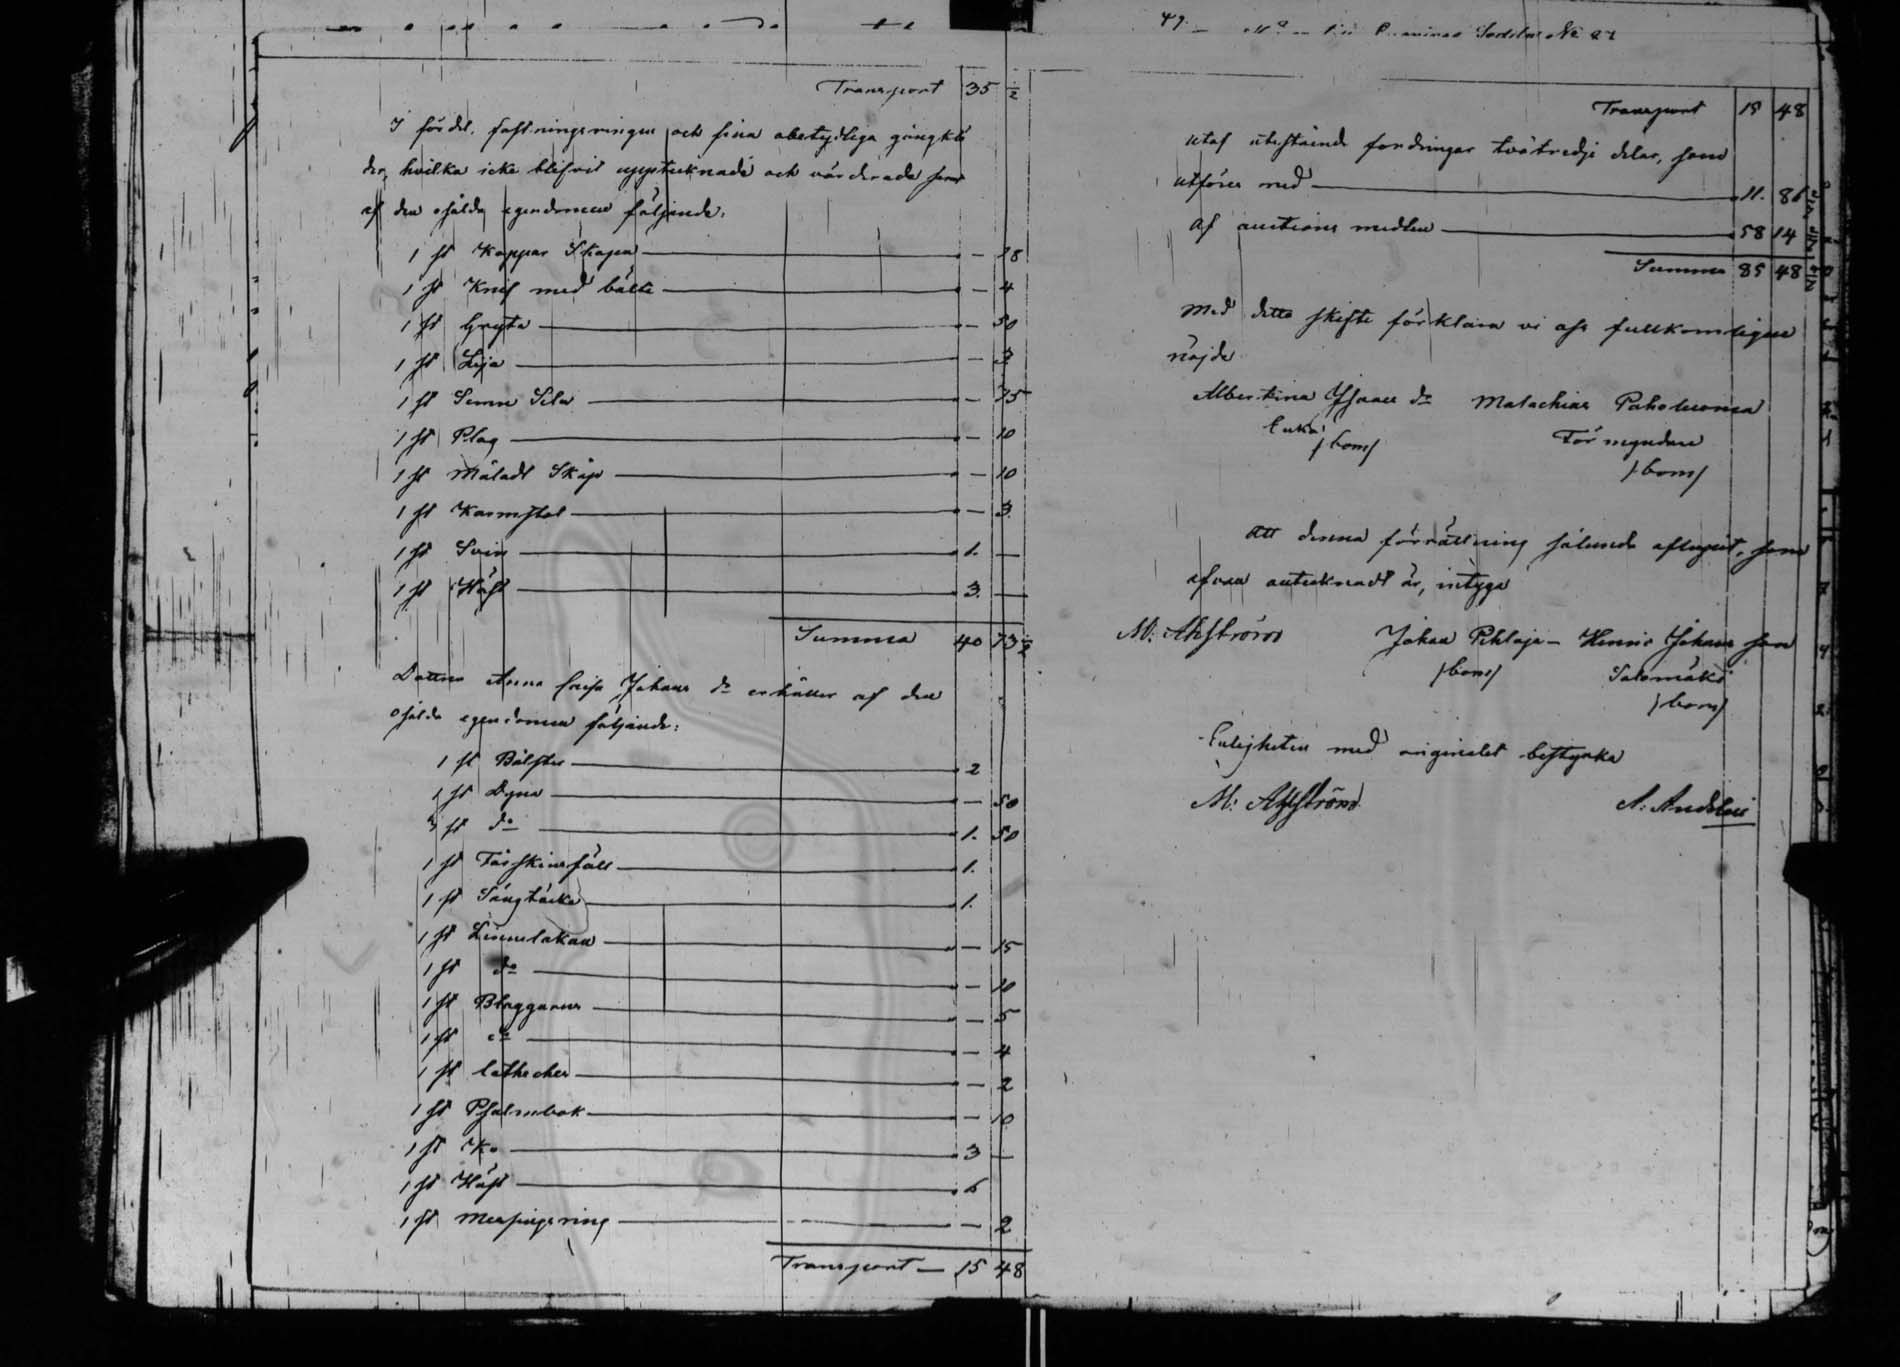 Transport 35 1/2
I fördel, fästningsringen och sina obetydliga gångklä
der, hvilka icke blifvit upptecknade och värderade samt
af den osålda egendomen följande:
1 st Koppar Skopa — 28
1 st Knif med bälte — 4
1 st Gryta — 50
1 st Lija — 3
1 st Seme Sela — 75
1 st Plog — 10
1 st Måladt Skåp — 10
1 st Karmstol — 3.
1 st Svin 1. —
1 st Häst 3. —
Summa 40 73 1/2
Dottren Anna Johans do erhåller af den
osålda egendomen följande:
1 st Bolster 2
1 st Dyna — 50
3 st do 1. 50
1 st Fårskinsfäll 1.
1 st Sängtäcke 1.
1 st Linnelakan — 15
1 st do — 10
1 st Blaggarns — 5
1 st do — 4
1 st Cathecher — 2
1 st Psalmbok — 10
1 st Ko 3 —
1 st Häst 6
1 st Messings ring — 2
Transport — 15 48
49.
Transport 15 48
Utaf utestående fordringar tvåtredje delar, som
utföres med 11. 86
Af auctions medlen 58 14
Summa 85 48
Med detta skifte förklara vi oss fullkomligen
nöjde
Albertina Isaacs do Malachias Paholuoma
Enka Förmyndare
/bom/
/bom/
Att denna förrättning sålunda aflupit, som
ofvan antecknadt är, intyga
M: Ahlström Johan Pihlaja — Henric Johans son
/bom/ Salomäki
/bom/
Enligheten med originalet bestyrka
M: Ahlström A: Andelin